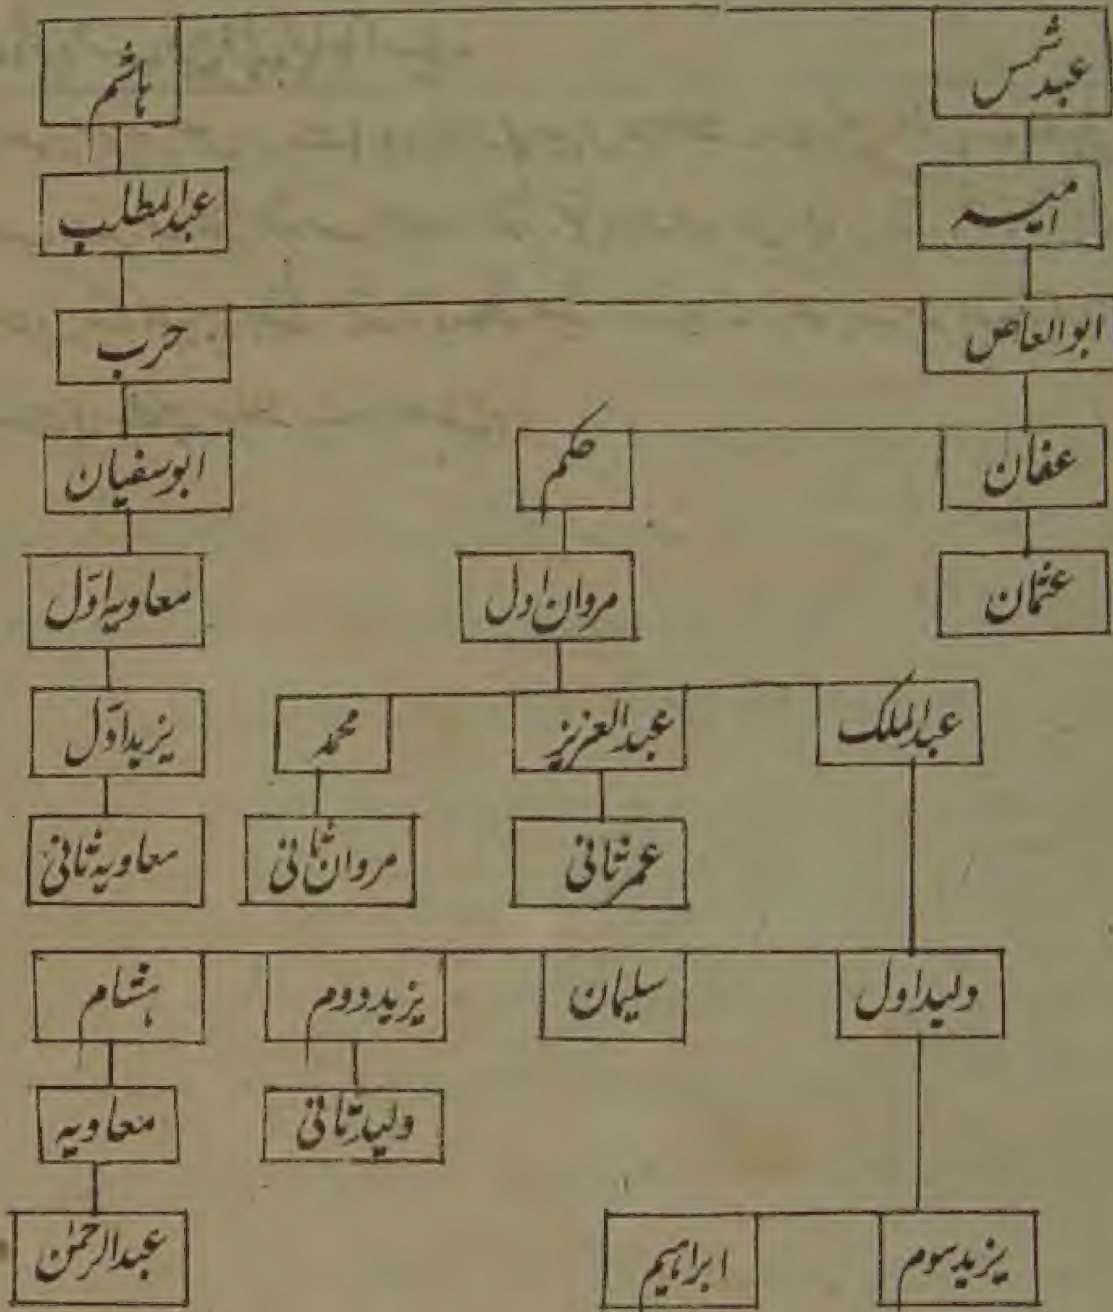 عبد شمس
ہاشم
امیہ
عبدالمطلب
ابوالعاص
حرب
عفان
حکم
ابوسفیان
عثمان
مروان اول
معاویہ اوّل
عبدالملک
عبدالعزیز
محمد
یزید اوّل
عمر ثانی
مروان ثانی
معاویہ ثانی
ولید اول
سلیمان
یزید دوم
ہشام
ولید ثانی
معاویہ
یزید سوم
ابراہیم
عبدالرحمٰن